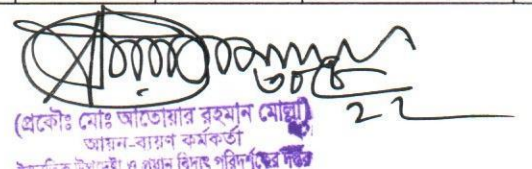 ৩০/৫
২২
(প্রকৌঃ মোঃ আতোয়ার রহমান মোল্লা)
আয়ন-ব্যয়ণ কর্মকর্তা
উপদেষ্টা ও প্রধান বিদ্যুৎ পরিদর্শকের দপ্তর